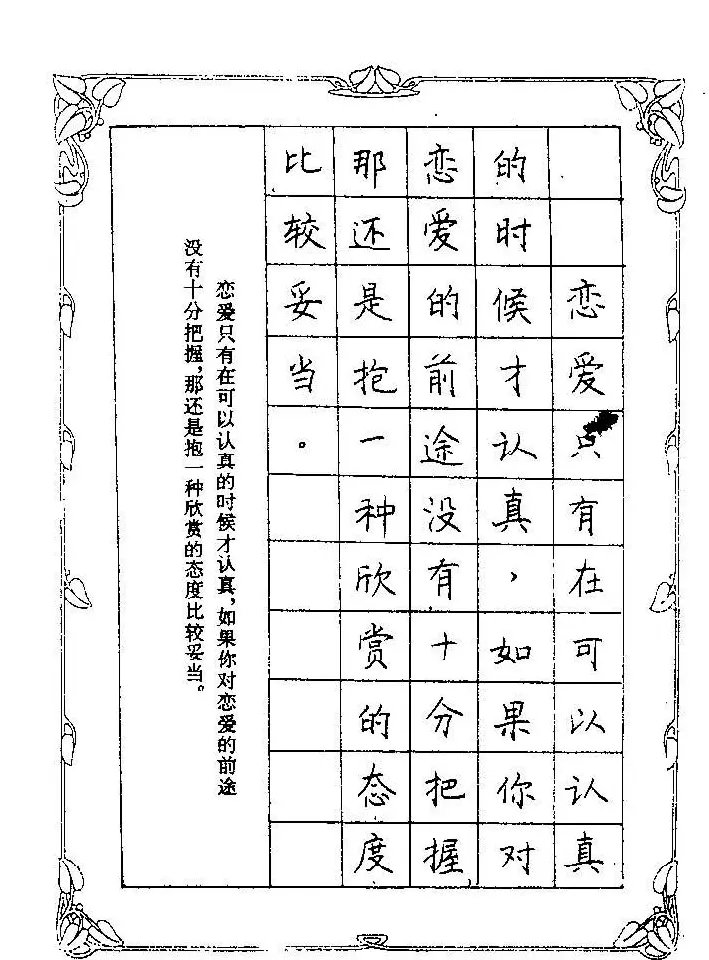 恋爱只有在可以认真
的时候才认真，如果你对
恋爱的前途没有十分把握，
那还是抱一种欣赏的态度
比较妥当。
恋爱只有在可以认真的时候才认真，如果你对恋爱的前途
没有十分把握，那还是抱一种欣赏的态度比较妥当。